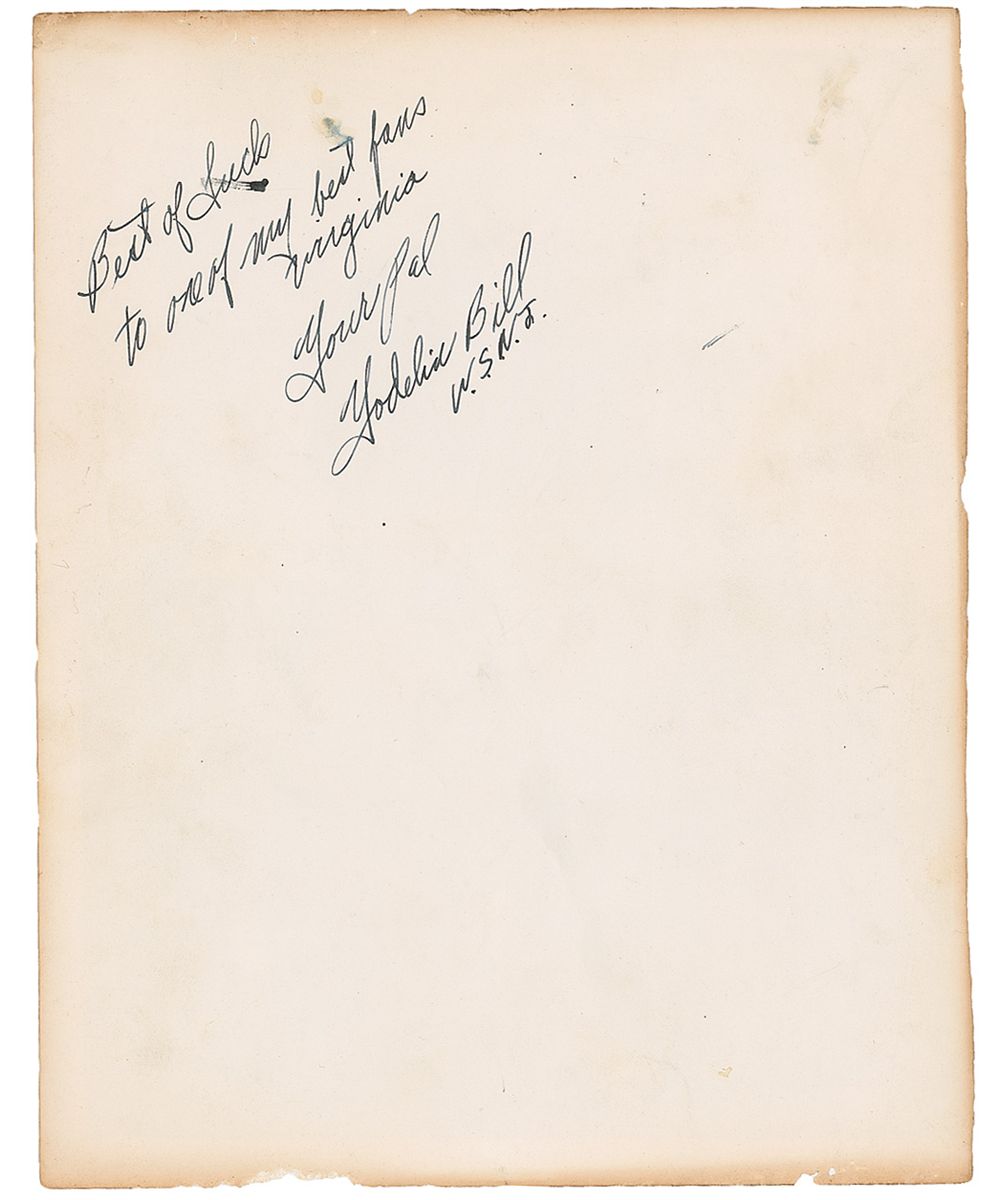 Best of Luck
to one of my best fans
Virginia
Your Pal
Yodelin Bill
W.S.N.J.